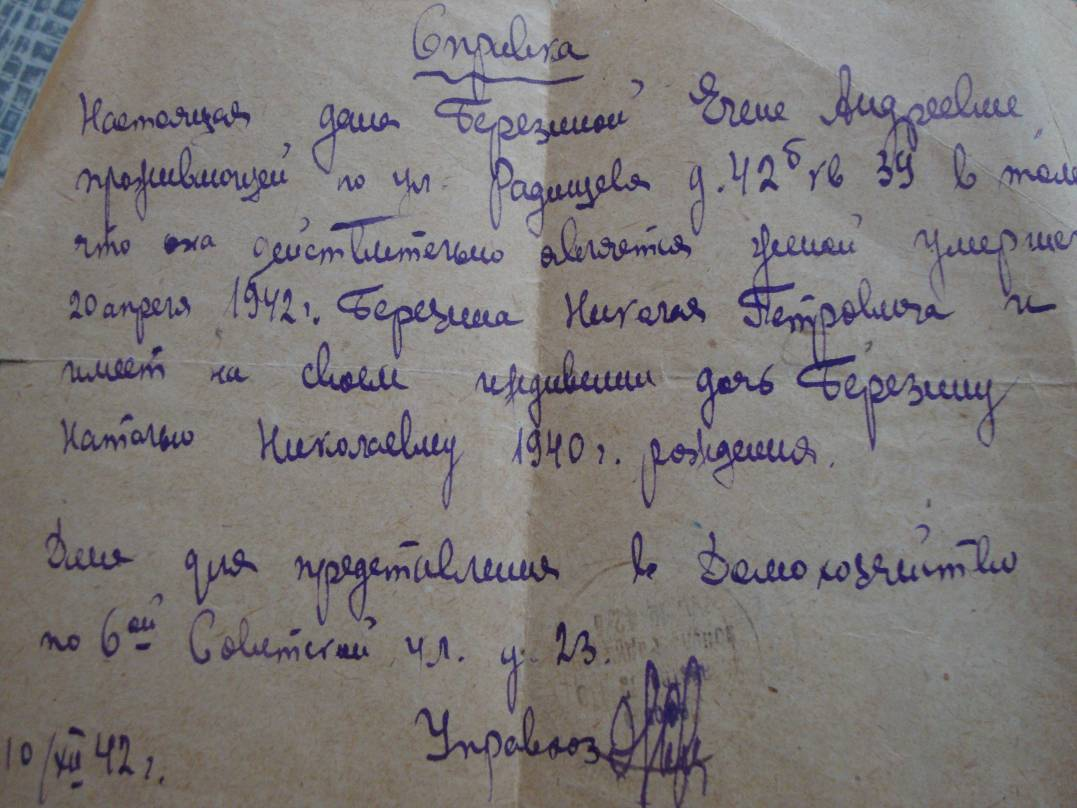 Справка
Настоящая дана Березиной Елене Андреевне
проживающей по ул. Радищева д. 42б кв 39 в том
что она действительно является женой умерше
20 апреля 1942 г. Березина Николая Петровича и
имеет на своем иждивении дочь Березину
Наталью Николаевну 1940 г. рождения.
Дана для представления в Домохозяйство
по 6ой Советской ул. д. 23.
Управхоз
10/XII 42 г.